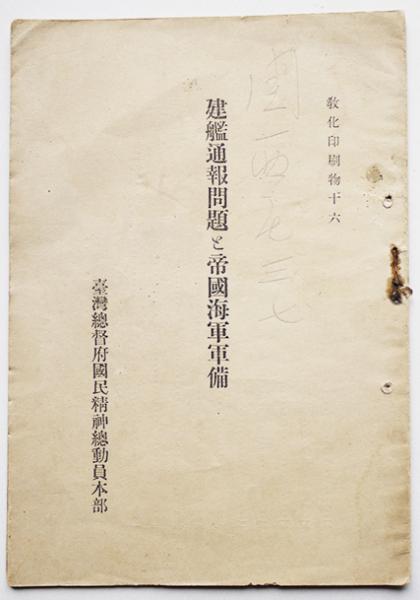 教化印刷物十六
建艦通報問題と帝國海軍軍備
臺灣總督府國民精神總動員本部